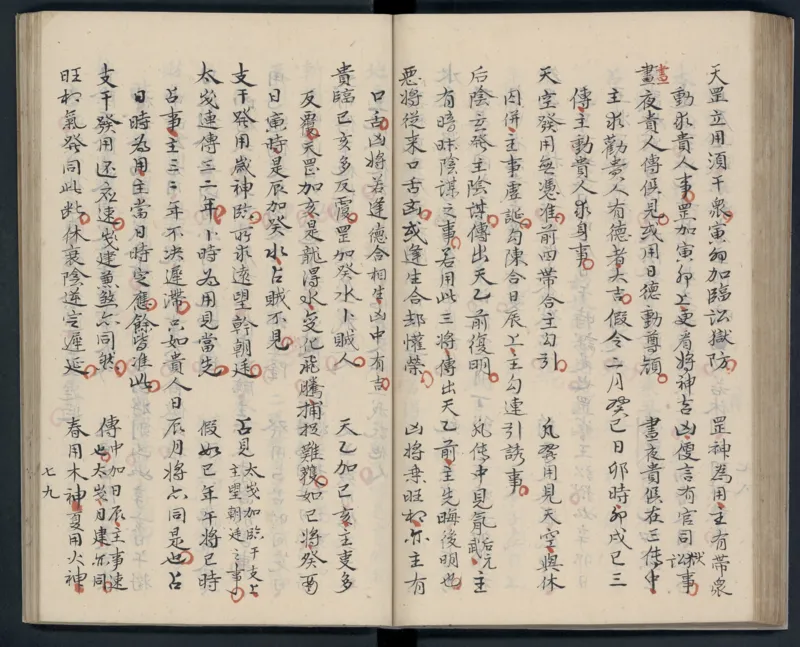 天罡立用須干衆寅卯加臨訟獄防　罡神為用主有帶衆
動求貴人事罡加寅卯上更看將神吉凶便言有官司訟獄事
晝夜貴人傳俱見或用日德動尊顏　晝夜貴俱在三傳中
主求勸貴人有德者大吉假令二月癸巳日卯時卯戌巳三
傳主動貴人求身事
天空發用無憑准前四帶合主勾引　凡發用見天空與休
囚併主事虛誕勾陳合日辰上主勾連引誘事
后陰玄發主陰謀傳出天乙前復明　凡傳中見武后元主
水有暗昧陰謀之事若用此三將傳出天乙前主先晦後明也
惡將從來口舌凶或逢生合却懽榮　凶將乗旺相亦主有
口舌凶將若逢德合相生凶中有吉
貴臨巳亥多反覆罡加癸水卜賊人　天乙加巳亥主更多
反覆天罡加亥是龍得水變化飛騰捕捉難獲如巳將癸酉
日寅時是辰加癸水占賊不見
支干發用歲神臨所求遠望幹朝廷　占見太歲加臨干支上主望朝廷之事
太歲連傳三二年卜時為用見當先　假如巳年午將巳時
占事主三二年不決遲滯只如貴人日辰月將亦同是也占
日時為用主當日時定應餘皆准此
支干發用还衣速歲建黄煞亦同然　傳中加日辰主事速也太歲月建亦同
旺相氣發同此断休衰陰逆定遲延　春用木神夏用火神
七九